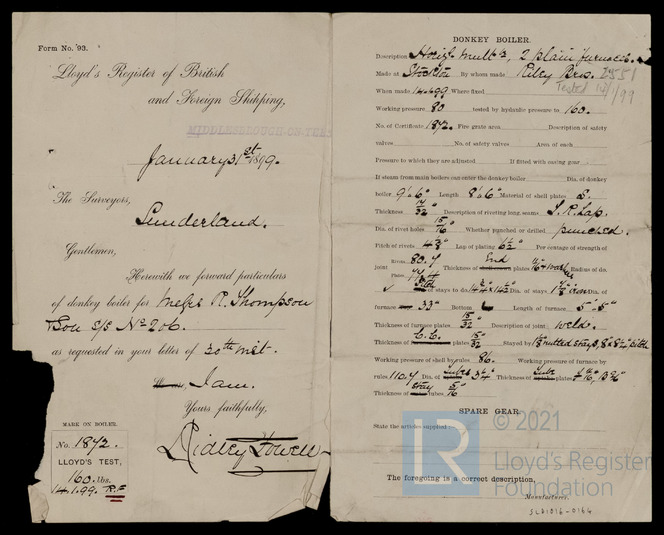 Form No. 93.
Lloyd's Register of British
and Foreign Shipping,
MIDDLESBROUGH-ON-TEES
January 31st 1899.
The Surveyors,
Sunderland.
Gentlemen,
Herewith we forward particulars
of donkey boiler for Messrs R. Thompson
Son S/S No 206.
as requested in your letter of 30th inst.
I am.
Yours faithfully,
Ridley Fowell
MARK ON BOILER.
No. 1892.
LLOYD'S TEST,
160 lbs.
14.1.99. R.F
DONKEY BOILER.
Description Horizl Mult'r, 2 plain furnaces.
Made at Stockton By whom made Riley Bros. 2551
Tested 14/1/99
When made 14.1.99 Where fixed
Working pressure 80 tested by hydraulic pressure to 160.
No. of Certificate 1892. Fire grate area Description of safety
valves No. of safety valves Area of each
Pressure to which they are adjusted If fitted with easing gear
If steam from main boilers can enter the donkey boiler Dia. of donkey
boiler 9'0" Length 8'6" Material of shell plates S.
Thickness /32" Description of riveting long. seams L.R. Lap.
Dia. of rivet holes 15/16" Whether punched or drilled punched.
Pitch of rivets Lap of plating 6½" Per centage of strength of
joint Rivets 80.4 Plate Thickness of End plates Radius of do.
of stays to 14½" x 14½" Dia. of stays Dia. of
furnace 33" Bottom Length of furnace 5'-5"
Thickness of furnace plates 15/32" Description of joint Weld.
Thickness of C.C. plates 15/32" Stayed by nutted stays, pitch
Working pressure of shell by rules 86. Working pressure of furnace by
rules 110.4 Dia. of Tubes 3¼" Thickness of Tube plates
Thickness of stay tubes 5/16"
SPARE GEAR.
State the articles supplied:
The foregoing is a correct description,
Manufacturer.
SLD1016-0166
© 2021
Lloyd's Register
Foundation